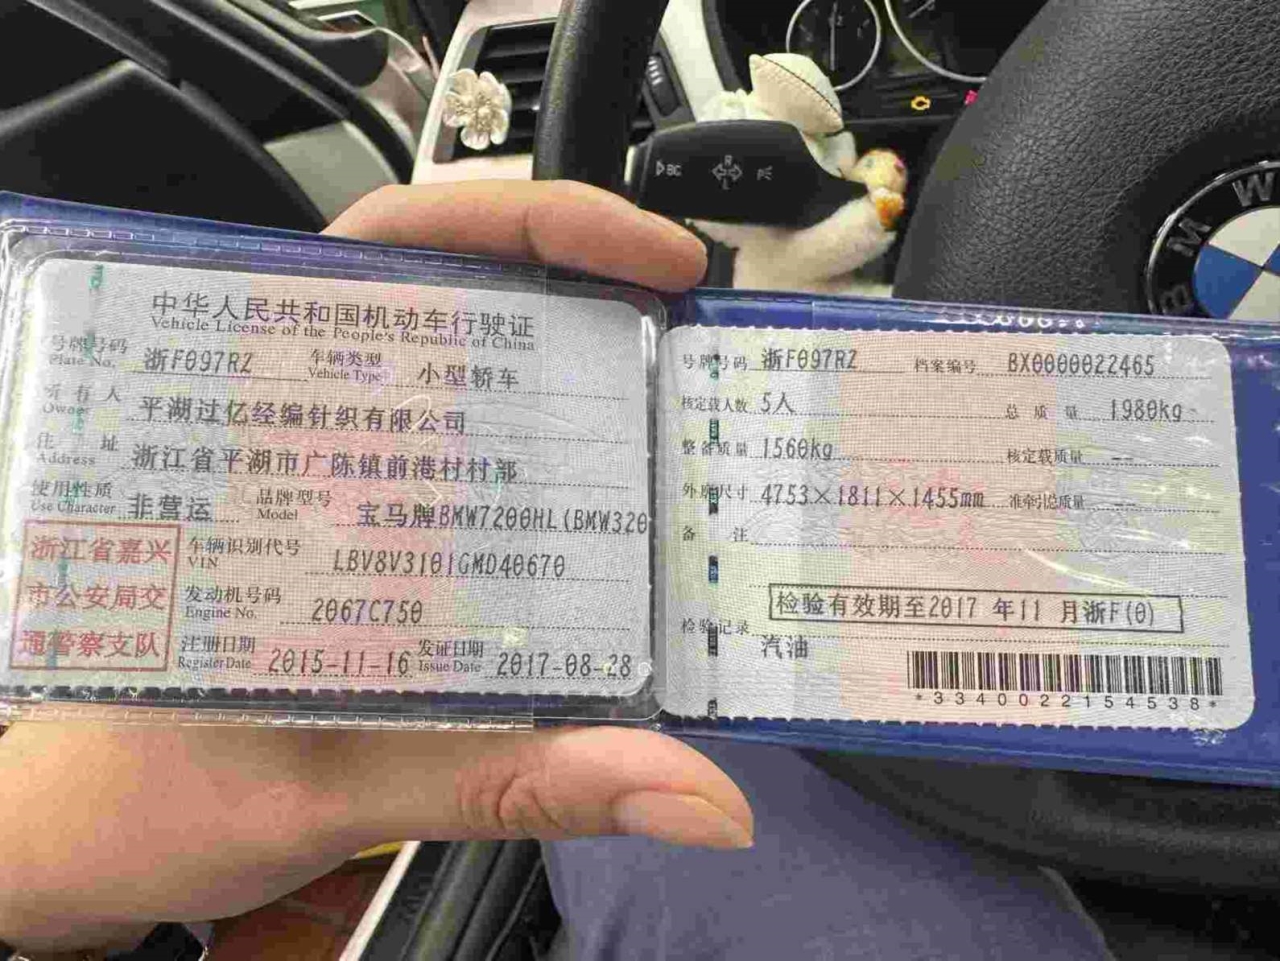 中华人民共和国机动车行驶证
Vehicle License of the People's Republic of China
号牌号码 浙F097RZ 车辆类型 小型轿车
Plate No. Vehicle Type
所有人 平湖过亿经编针织有限公司
Owner
住址 浙江省平湖市广陈镇前港村村部
Address
使用性质 非营运 品牌型号 宝马牌BMW7200HL(BMW320
Use Character Model
浙江省嘉兴
市公安局交
通警察支队
车辆识别代号 LBV8V3101GMD40670
VIN
发动机号码 2067C750
Engine No.
注册日期 2015-11-16 发证日期 2017-08-28
Register Date Issue Date
号牌号码 浙F097RZ 档案编号 BX0000022465
核定载人数 5人 总质量 1980kg
整备质量 1560kg 核定载质量 --
外廓尺寸 4753×1811×1455mm 准牵引总质量 --
备注
检验有效期至2017 年11 月浙F(0)
检验记录
汽油
*3340022154538*
BC
R
L
BMW